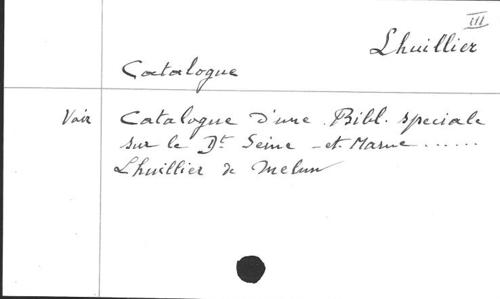 III
Lhuillier
Catalogue
Voir Catalogue d'une Bibl. speciale
sur le Dt Seine-et-Marne ......
Lhuillier de Melun